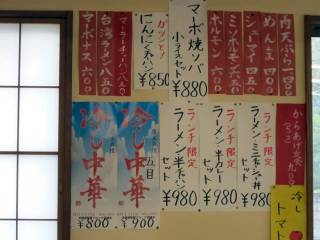 肉天ぷら 一四〇〇
めんま 四〇〇
シューマイ 四〇〇
ミソホルモン 六五〇
ホルモン 六〇〇
マーボ焼ソバ
小ライスセット
¥880
ガツンと!
にんにく炒ハン
¥850
マーラーチャーハン 八八〇
台湾ラーメン 八五〇
マーボナス 六八〇
からあげ定食
冷し
トマト
ランチ限定
ラーメン・ミニ天シン丼
セット
¥980
ランチ限定
ラーメン・半カレー
セット
¥980
ランチ限定
ラーメン・半チャハン
セット
¥980
五目
冷し中華
¥960
冷し中華
¥800